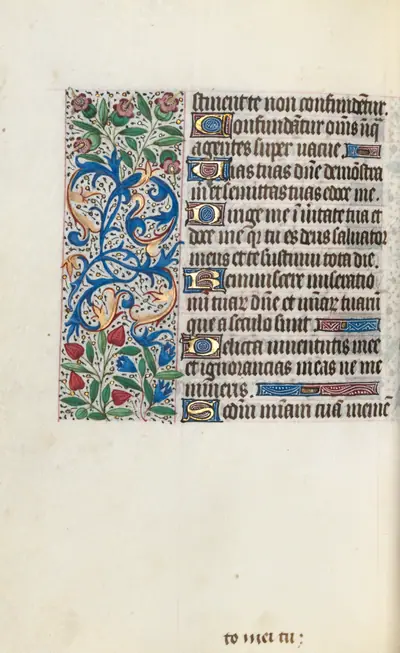 stinent te non confundentur.
Confundantur om̄s iniq̄
agentes super vacue.
Uias tuas dn̄e demōstra
m̄ et semittas tuas edoce me.
Dirige me ī ūitate tua et
doce me qr̄ tu es deus saluator
meus et te sustinui tota die.
Reminiscere miseratio
nū tuar̄ dn̄e et mīar̄ tuarū
que a seculo sunt.
Delicta iuuentutis mee
et ignorancias meas ne me
mineris.
Scdm̄ mīam tuā memē
to mei tu: